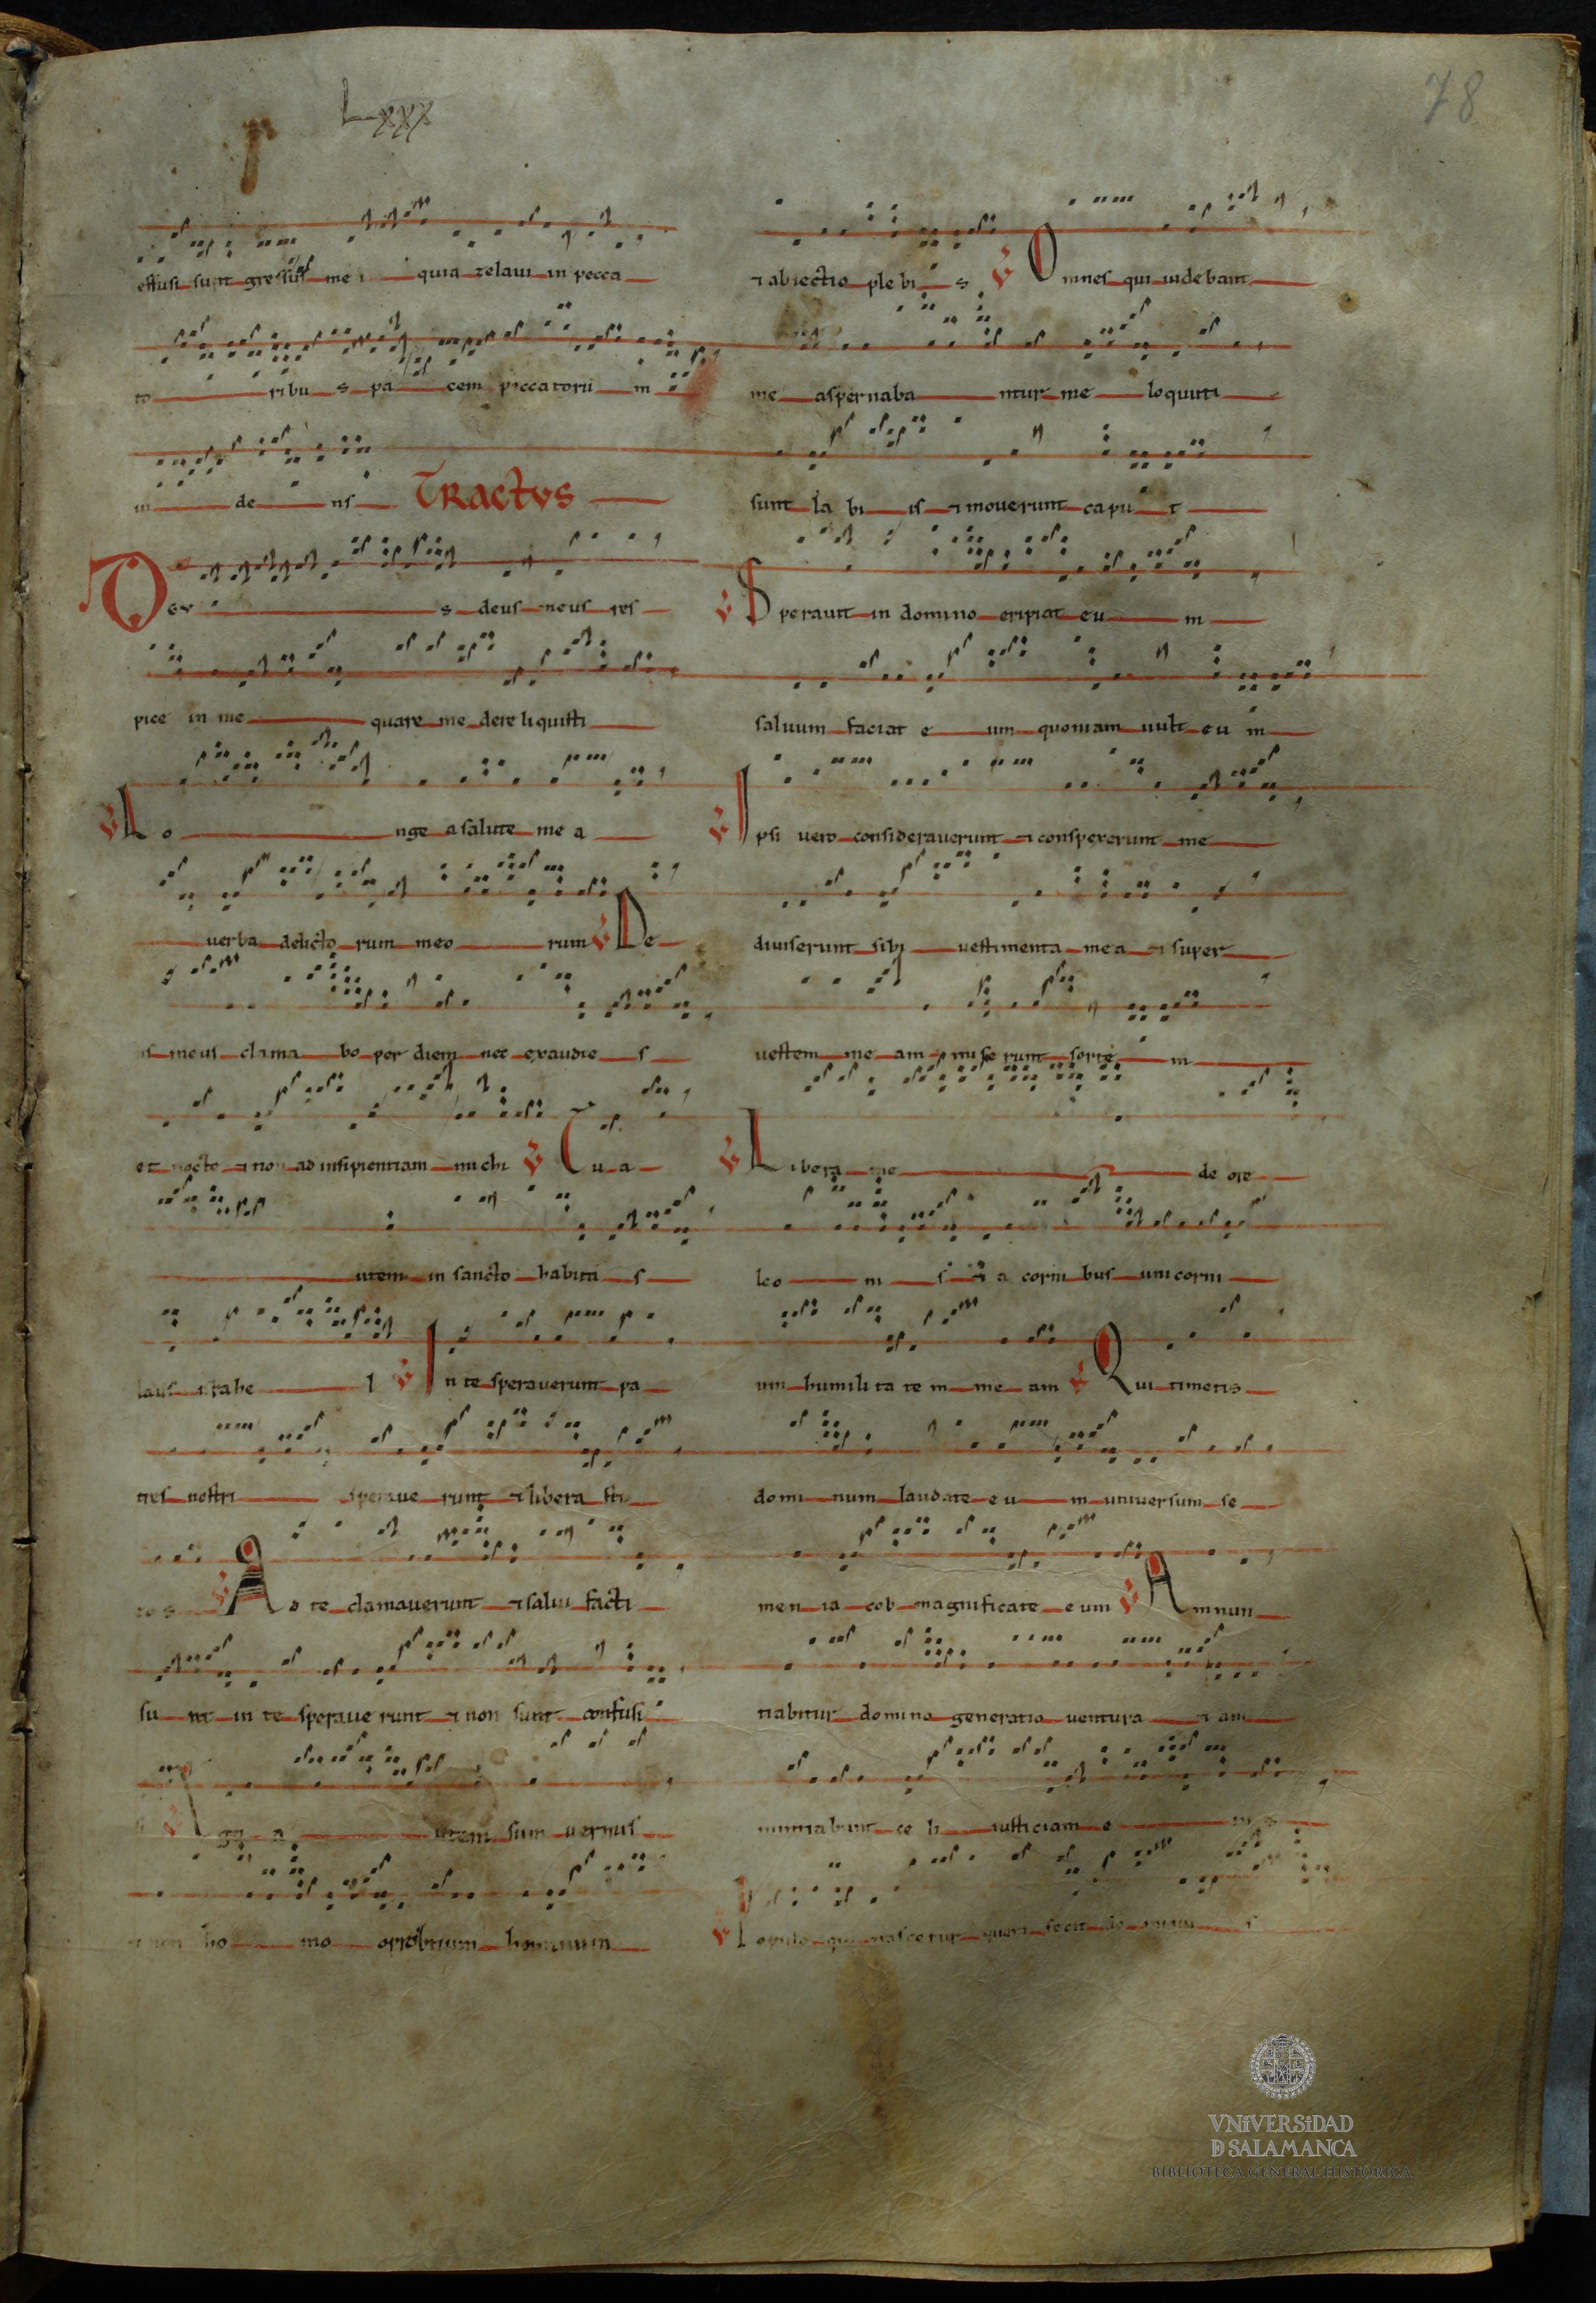 Lxxx
78
effusi sunt gressus me i quia zelaui in pecca
to ribu s pa cem peccatorū in
ui de ns TRactvs
De v s deus meus res
pice in me quare me dereliquisti
℣ Lo nge a salute me a
uerba delicto rum meo rum ℣ De
us meus clama bo per diem nec exaudie s
et nocte ⁊ non ad insipientiam michi ℣ Tu a
utem in sancto habita s
laus israhe l ℣ In te sperauerunt pa
tres nostri speraue runt ⁊ libera sti
eo s ℣ Ad te clamauerunt ⁊ salui facti
su nt in te speraue runt ⁊ non sunt confusi
℣ Ego a utem sum uermis
⁊ non ho mo opprobrium hominum
⁊ abiectio plebi s ℣ Omnes qui uidebant
me aspernaba ntur me loquuti
sunt la bi is ⁊ mouerunt capu t
℣ Sperauit in domino eripiat eu m
saluum faciat e um quoniam uult eu m
℣ Ipsi uero considerauerunt ⁊ conspexerunt me
diuiserunt sibi uestimenta mea ⁊ super
uestem me am mise runt sorte m
℣ Libera me de ore
leo ni s ⁊ a corni bus unicorni
um humilita te m me am ℣ Qui timetis
domi num laudate eu m uniuersum se
men ia cob magnificate eum ℣ Amnun
tiabitur domino generatio uentura ⁊ an
nuntiabunt ce li iusticiam e iu s
℣ Populo qui nascetur quem fecit do minu s
VNiVERSiDAD
D SALAMANCA
BIBLIOTECA GENERAL HISTÓRICA